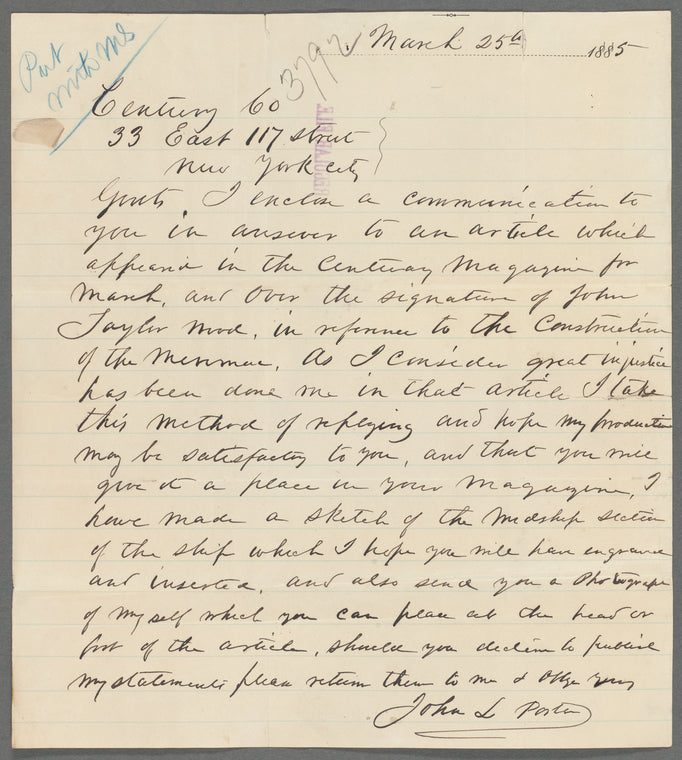 Put
with MS
3792
March 25th 1885
Century Co
33 East 117 street
New York city
Gents, I enclose a communication to
you in answer to an article which
appeard in the Century Magazine for
March, and over the signature of John
Taylor Wood, in reference to the Construction
of the Merrimac, As I consider great injustice
has been done me in that article I take
this method of replying and hope my production
may be satisfactory to you, and that you will
give it a place in your Magazine, I
have made a sketch of the Midship section
of the ship which I hope you will have engraved
and inserted, and also send you a Photograph
of myself which you can place at the head or
foot of the article, should you decline to publish
my statements please return them to me & oblige yours
John L Porter